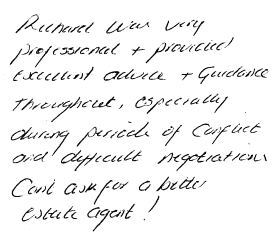 Richard was very
professional + provided
excellent advice + Guidance
throughout, especially
during periods of Conflict
and difficult negotiations
Can't ask for a better
estate agent!